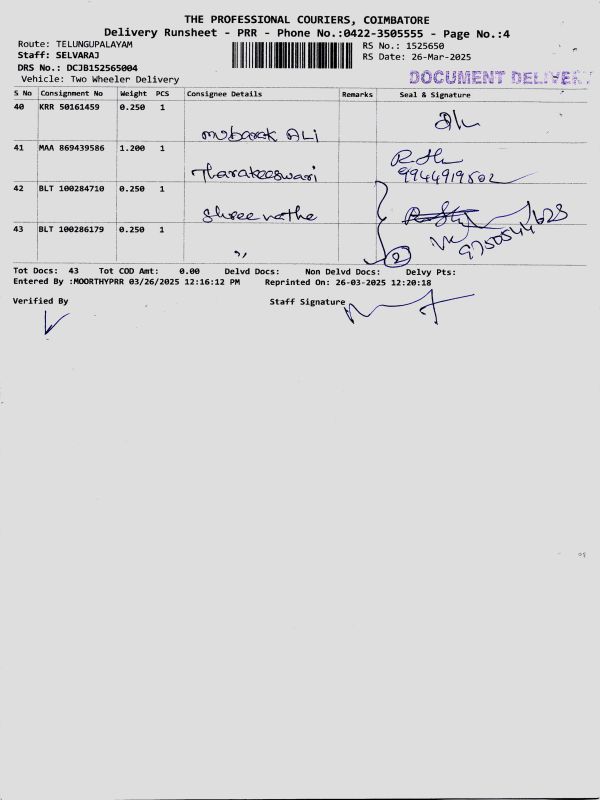 THE PROFESSIONAL COURIERS, COIMBATORE
Delivery Runsheet - PRR - Phone No.:0422-3505555 - Page No.:4
Route: TELUNGUPALAYAM
Staff: SELVARAJ
DRS No.: DCJB152565004
Vehicle: Two Wheeler Delivery
RS No.: 1525650
RS Date: 26-Mar-2025
DOCUMENT DELIVER
S No Consignment No Weight PCS Consignee Details Remarks Seal & Signature
40 KRR 50161459 0.250 1
mubarak ALi
41 MAA 869439586 1.200 1
Tharakeeswari
9944919502
42 BLT 100284710 0.250 1
Shree nethe
43 BLT 100286179 0.250 1
,,
2
9750544623
Tot Docs: 43 Tot COD Amt: 0.00 Delvd Docs: Non Delvd Docs: Delvy Pts:
Entered By :MOORTHYPRR 03/26/2025 12:16:12 PM Reprinted On: 26-03-2025 12:20:18
Verified By Staff Signature